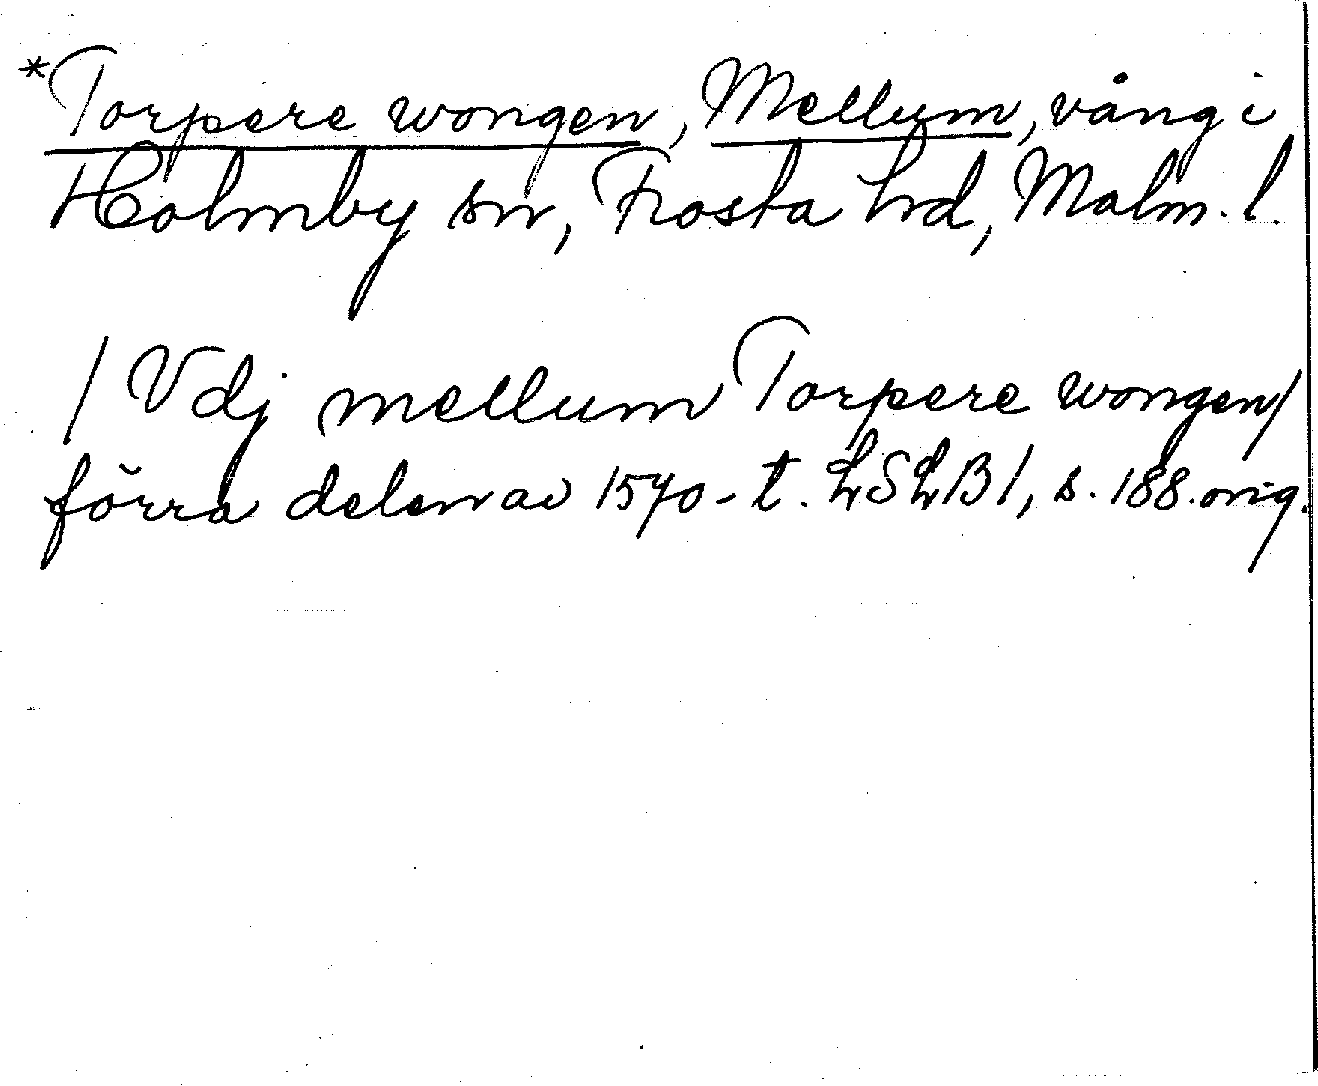 *Torpere wongen, Mellum, vång i
Holmby sn, Frosta hd, Malm. l.
/Vdj mellum Torpere wongen/
förra delen av 1570-t. LSLB1, s. 188. orig.